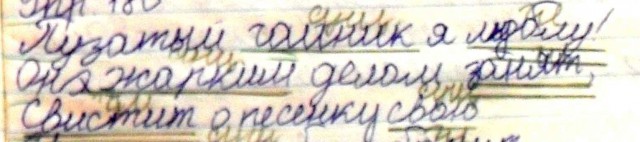 Упр 180
Пузатый чайник я люблю!
Он жарким делом занят,
Свистит о песенку свою